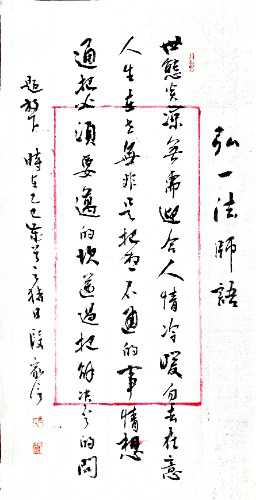 弘一法師語
世態炎涼無需迎合人情冷暖勿去在意
人生在世無非是把想不通的事情想
通把必須要邁的坎邁過把解決了的問
題放下 時在乙巳